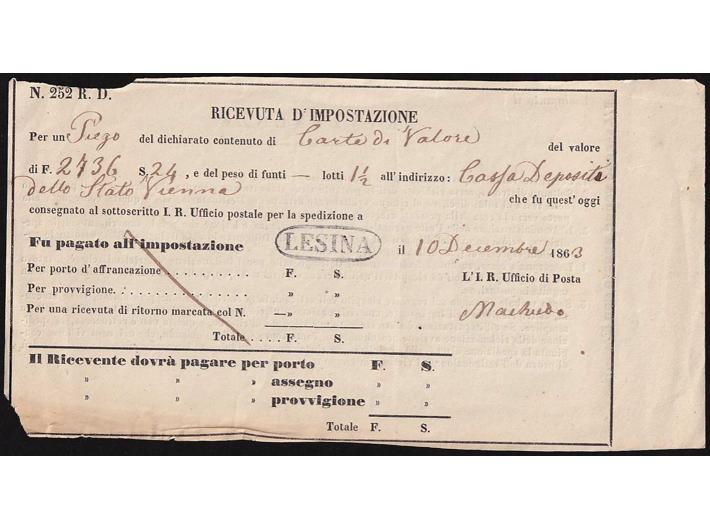 N. 252 R. D.
RICEVUTA D'IMPOSTAZIONE
Per un Piego del dichiarato contenuto di Carte di Valore del valore
di F. 2736 S. 24, e del peso di funti — lotti 1½ all'indirizzo: Cassa Depositi
dello Stato Vienna che fu quest' oggi
consegnato al sottoscritto I. R. Ufficio postale per la spedizione a
Fu pagato all'impostazione LESINA il 10 Decembre 1863
Per porto d'affrancazione . . . . . . . . . . F. S. L'I. R. Ufficio di Posta
Per provvigione. . . . . . . . . . . . . . . . » »
Per una ricevuta di ritorno marcata col N. —» »
Totale . . . . F. S.
Il Ricevente dovrà pagare per porto F. S.
» » » assegno » »
» » » provvigione » »
Totale F. S.